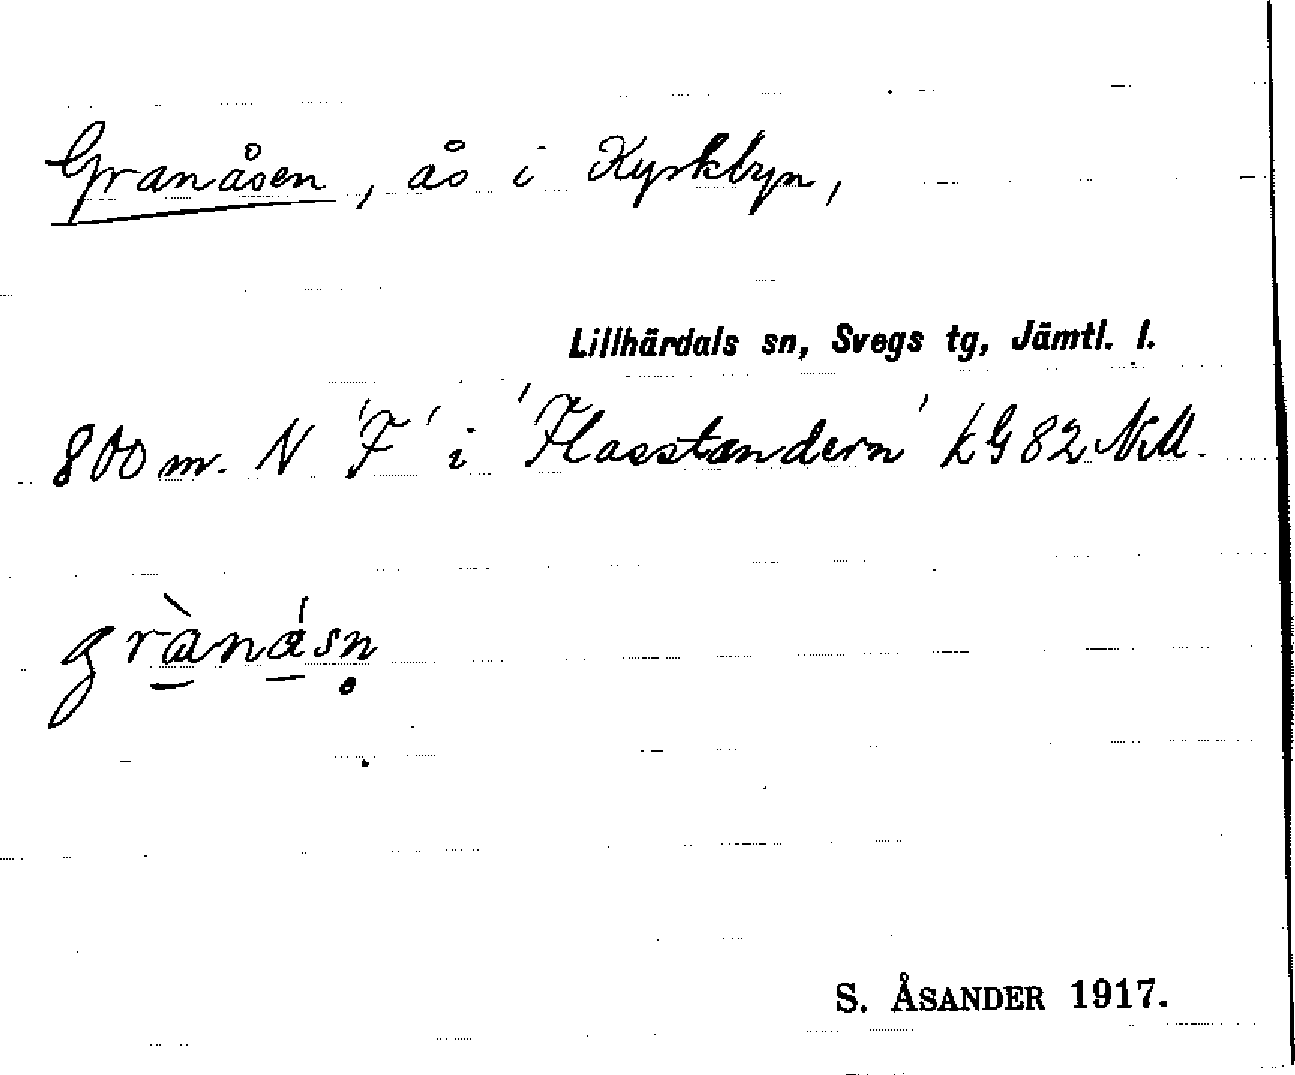 Granåsen, ås i Kyrkbyn,
Lillhärdals sn, Svegs tg, Jämtl. l.
800 m. N 'F' i 'Flasstandern' LG 82 N.M.
grànásn̥
S. ÅSANDER 1917.